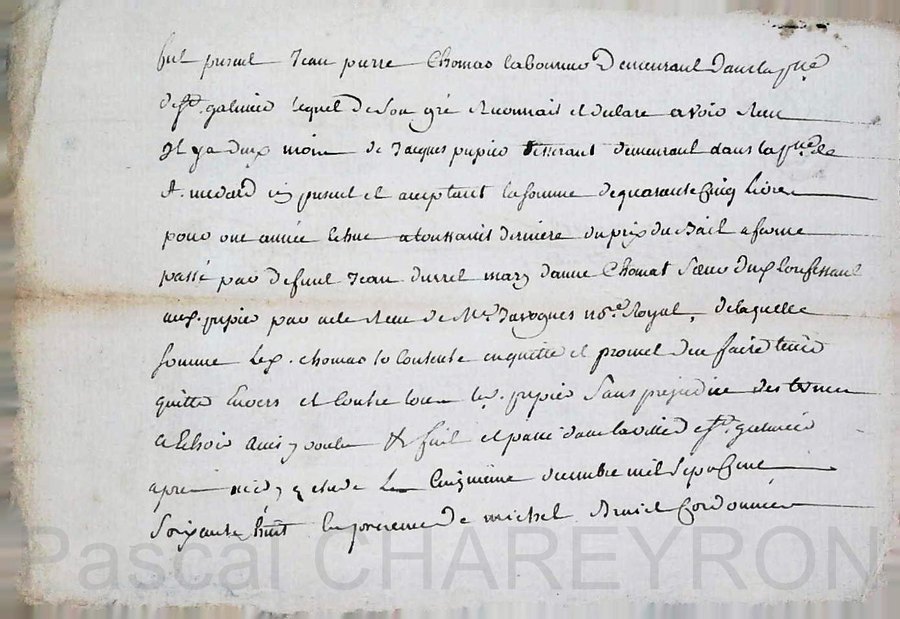 fut présent Jean pierre Chomat laboureur demeurant dans la psse
de st. galmier lequel de son gré reconnait et declare avoir reçu
il y a deux mois de Jacques pupier tisserant demeurant dans la psse de
st. medard cy present et acceptant la somme de quarante cinq livres
pour une année echue a toussaints derniere du prix du Bail a ferme
passé par defunt Jean mary d'anne Chomat sœur dud. Confessant
aud. pupier par acte reçu de Me. notre Royal, de laquelle
somme led. chomat se contente en quitte et promet l'en faire tenir
quitte envers et contre tous led. pupier sans prejudice des termes
a Echoir ainsy voulu fait et passé dans la ville de st. galmier
apres midy etude le cinqieme decembre mil sept cent
soixante huit en presence de michel cordonnier
Pascal CHAREYRON